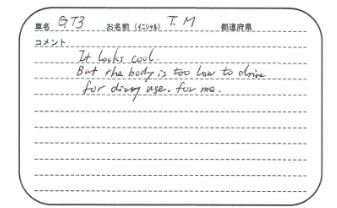 車名 GT3 お名前 (イニシャル) T.M 都道府県
コメント
It looks cool.
But the body is too low to drive
for diary use. for me.